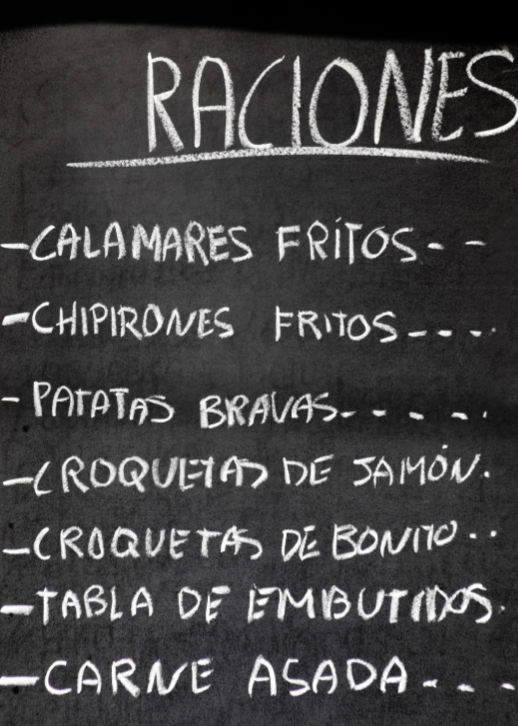 RACIONES
-CALAMARES FRÍTOS- -
-CHIPIRONES FRITOS----.
-PATATAS BRAVAS-----.
-CROQUETAS DE JAMÓN.
-CROQUETAS DE BONITO..
-TABLA DE EMBUTIDOS.
-CARNE ASADA----